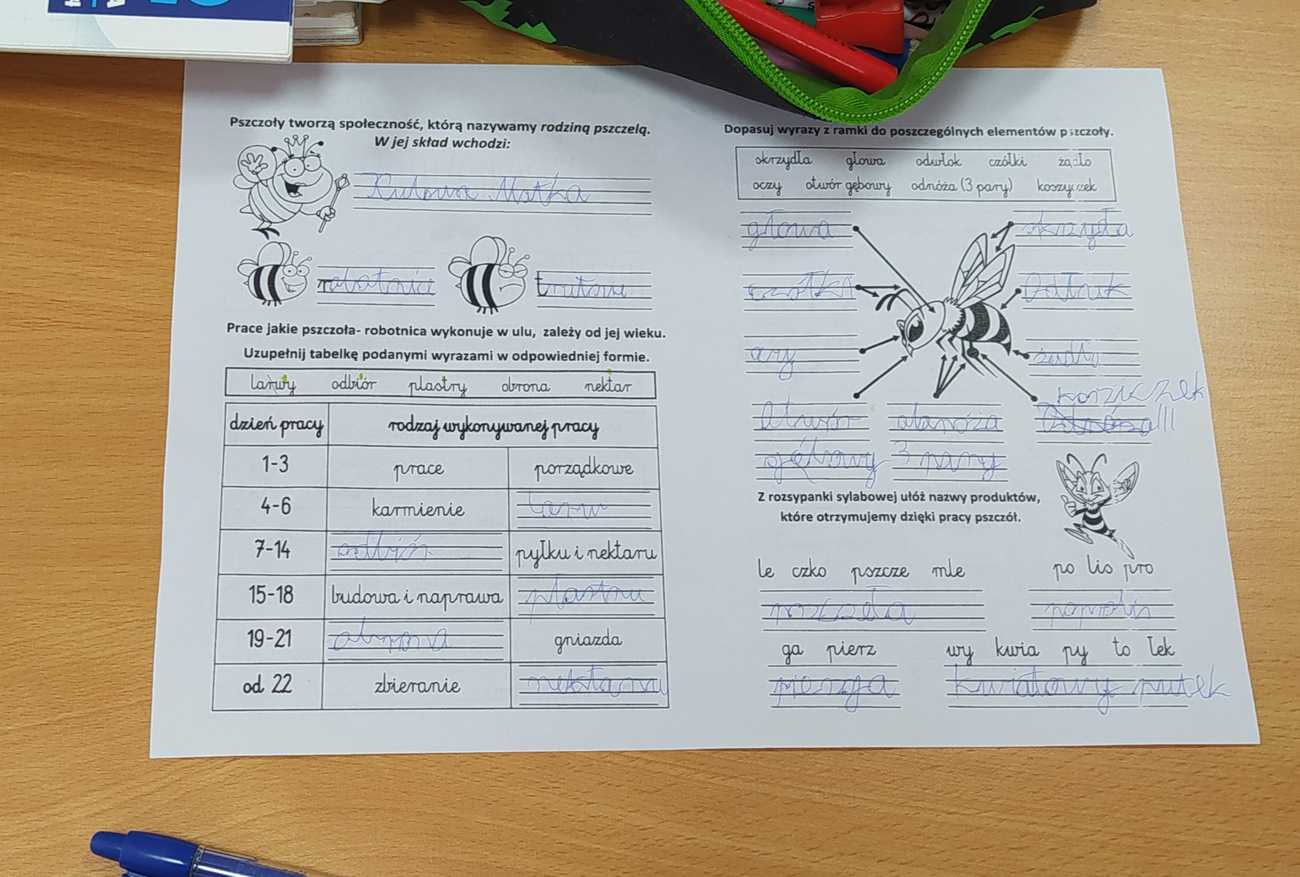 Pszczoły tworzą społeczność, którą nazywamy rodziną pszczelą.
W jej skład wchodzi:
Matka
trutnie
Prace jakie pszczoła- robotnica wykonuje w ulu, zależy od jej wieku.
Uzupełnij tabelkę podanymi wyrazami w odpowiedniej formie.
larwy odbiór plastry obrona nektar
dzień pracy rodzaj wykonywanej pracy
1-3 prace porządkowe
4-6 karmienie larw
7-14 odbiór pyłku i nektaru
15-18 budowa i naprawa
19-21 obrona gniazda
od 22 zbieranie nektaru
Dopasuj wyrazy z ramki do poszczególnych elementów pszczoły.
skrzydła głowa odwłok czółki żądło
oczy otwór gębowy odnóża (3 pary) koszyczek
głowa
otwór
3 pary
Z rozsypanki sylabowej ułóż nazwy produktów,
które otrzymujemy dzięki pracy pszczół.
le czko pszcze mle
po lis pro
ga pierz
wy kwia py to łek
pierzga
kwiatowy